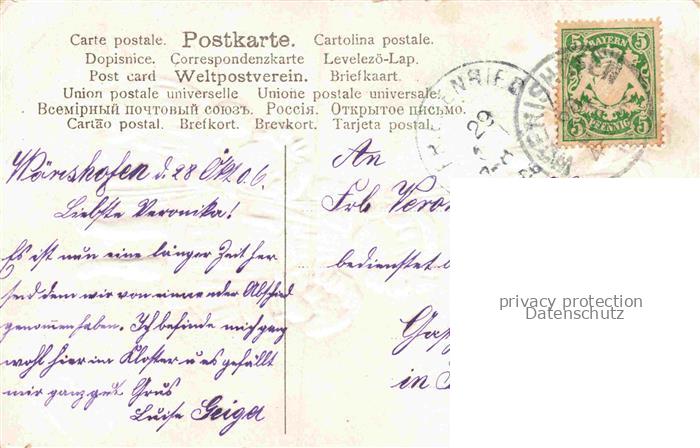 Carte postale. Postkarte. Cartolina postale.
Dopisnice. Correspondenzkarte Levelező-Lap.
Post card Weltpostverein. Briefkaart.
Union postale universelle Unione postale universale
Всемірный почтовый союзъ. Россія. Открытое письмо.
Cartão postal. Brefkort. Brevkort. Tarjeta postal.
Wörishofen d. 28 Okt. 06.
Liebste Veronika!
Es ist nun eine länger Zeit her
seid dem wir von einander Abschied
genommen haben. Ich befinde mich ganz
wohl hier im Kloster u es gefällt
mir ganz gut Grus
Luise Geiger
An
Frl Vero
bedienstet
Gas
in
5 BAYERN 5
5 PFENNIG 5
ENRIED
29
WÖRISH
privacy protection
Datenschutz